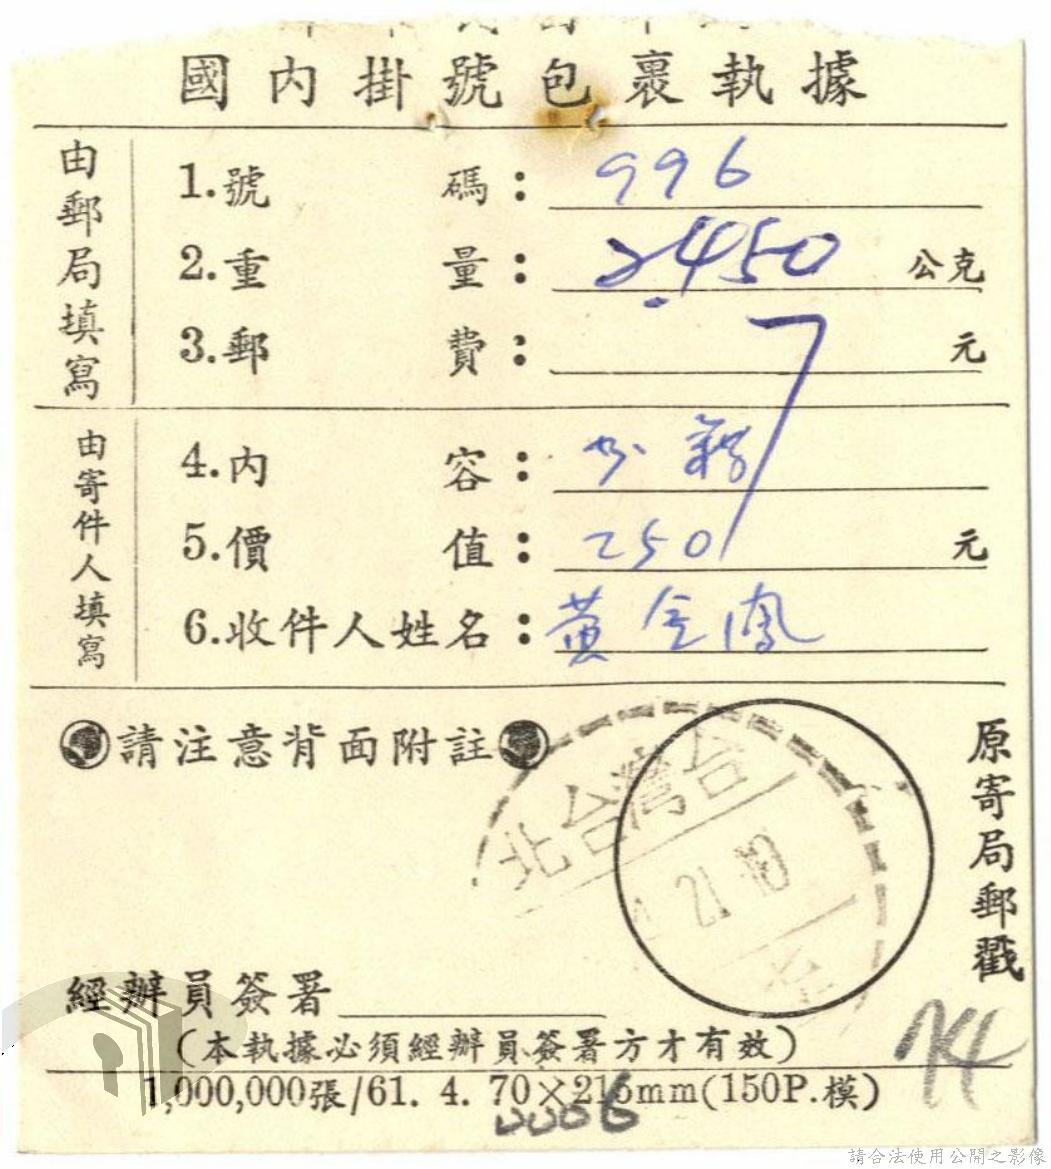 國內掛號包裹執據
由郵局填寫
1.號碼：996
2.重量：2.450公克
3.郵費：元
由寄件人填寫
4.內容：
5.價值：250元
6.收件人姓名：黃金鳳
請注意背面附註
原寄局郵戳
台灣台北
21
經辦員簽署
（本執據必須經辦員簽署方才有效）
1,000,000張/61. 4. 70×215mm(150P.模)
0006
請合法使用公開之影像